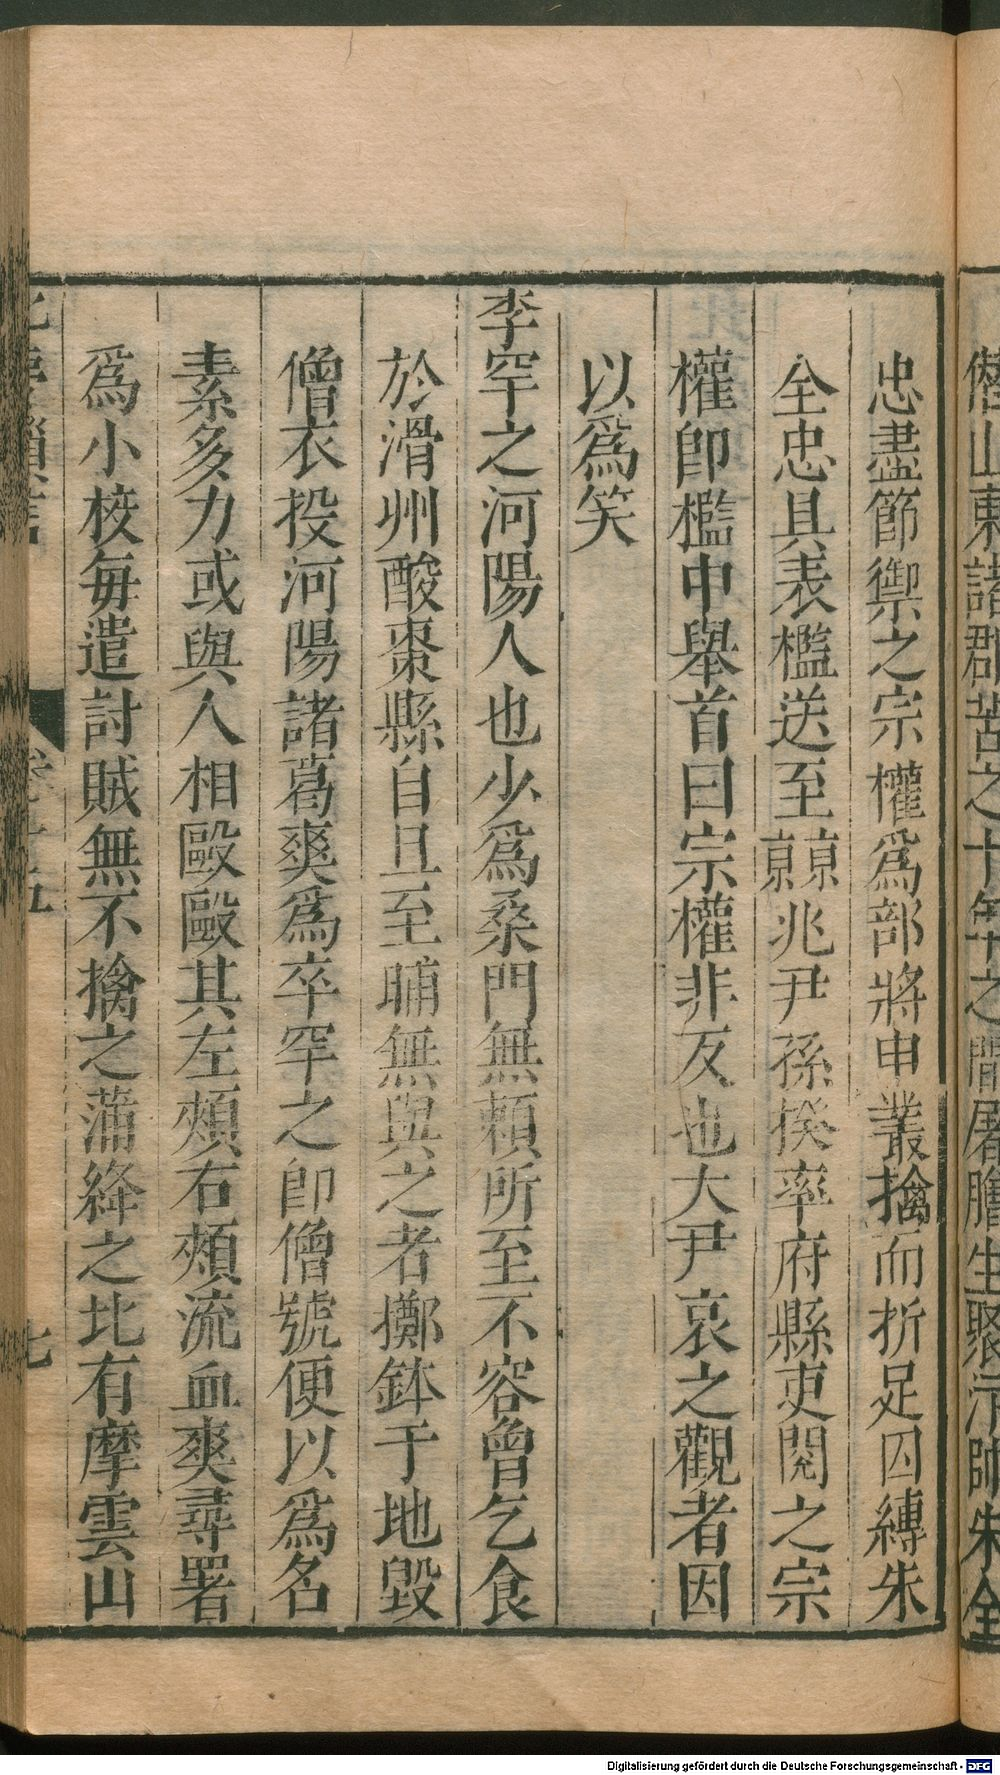 僭山東諸郡苦之十年之間屠膾生聚汴帥朱全
忠盡節禦之宗權爲部將申叢擒而折足囚縛朱
全忠具表檻送至京兆尹孫揆率府縣吏閱之宗
權卽檻中舉首曰宗權非反也大尹哀之觀者因
以爲笑
李罕之河陽人也少爲桑門無賴所至不容曾乞食
於滑州酸棗縣自旦至晡無與之者擲鉢于地毀
僧衣投河陽諸葛爽爲卒罕之卽僧號便以爲名
素多力或與人相毆毆其左頰右頰流血爽尋署
爲小校每遣討賊無不擒之蒲絳之北有摩雲山
北夢瑣言 卷十五 七
Digitalisierung gefördert durch die Deutsche Forschungsgemeinschaft - DFG